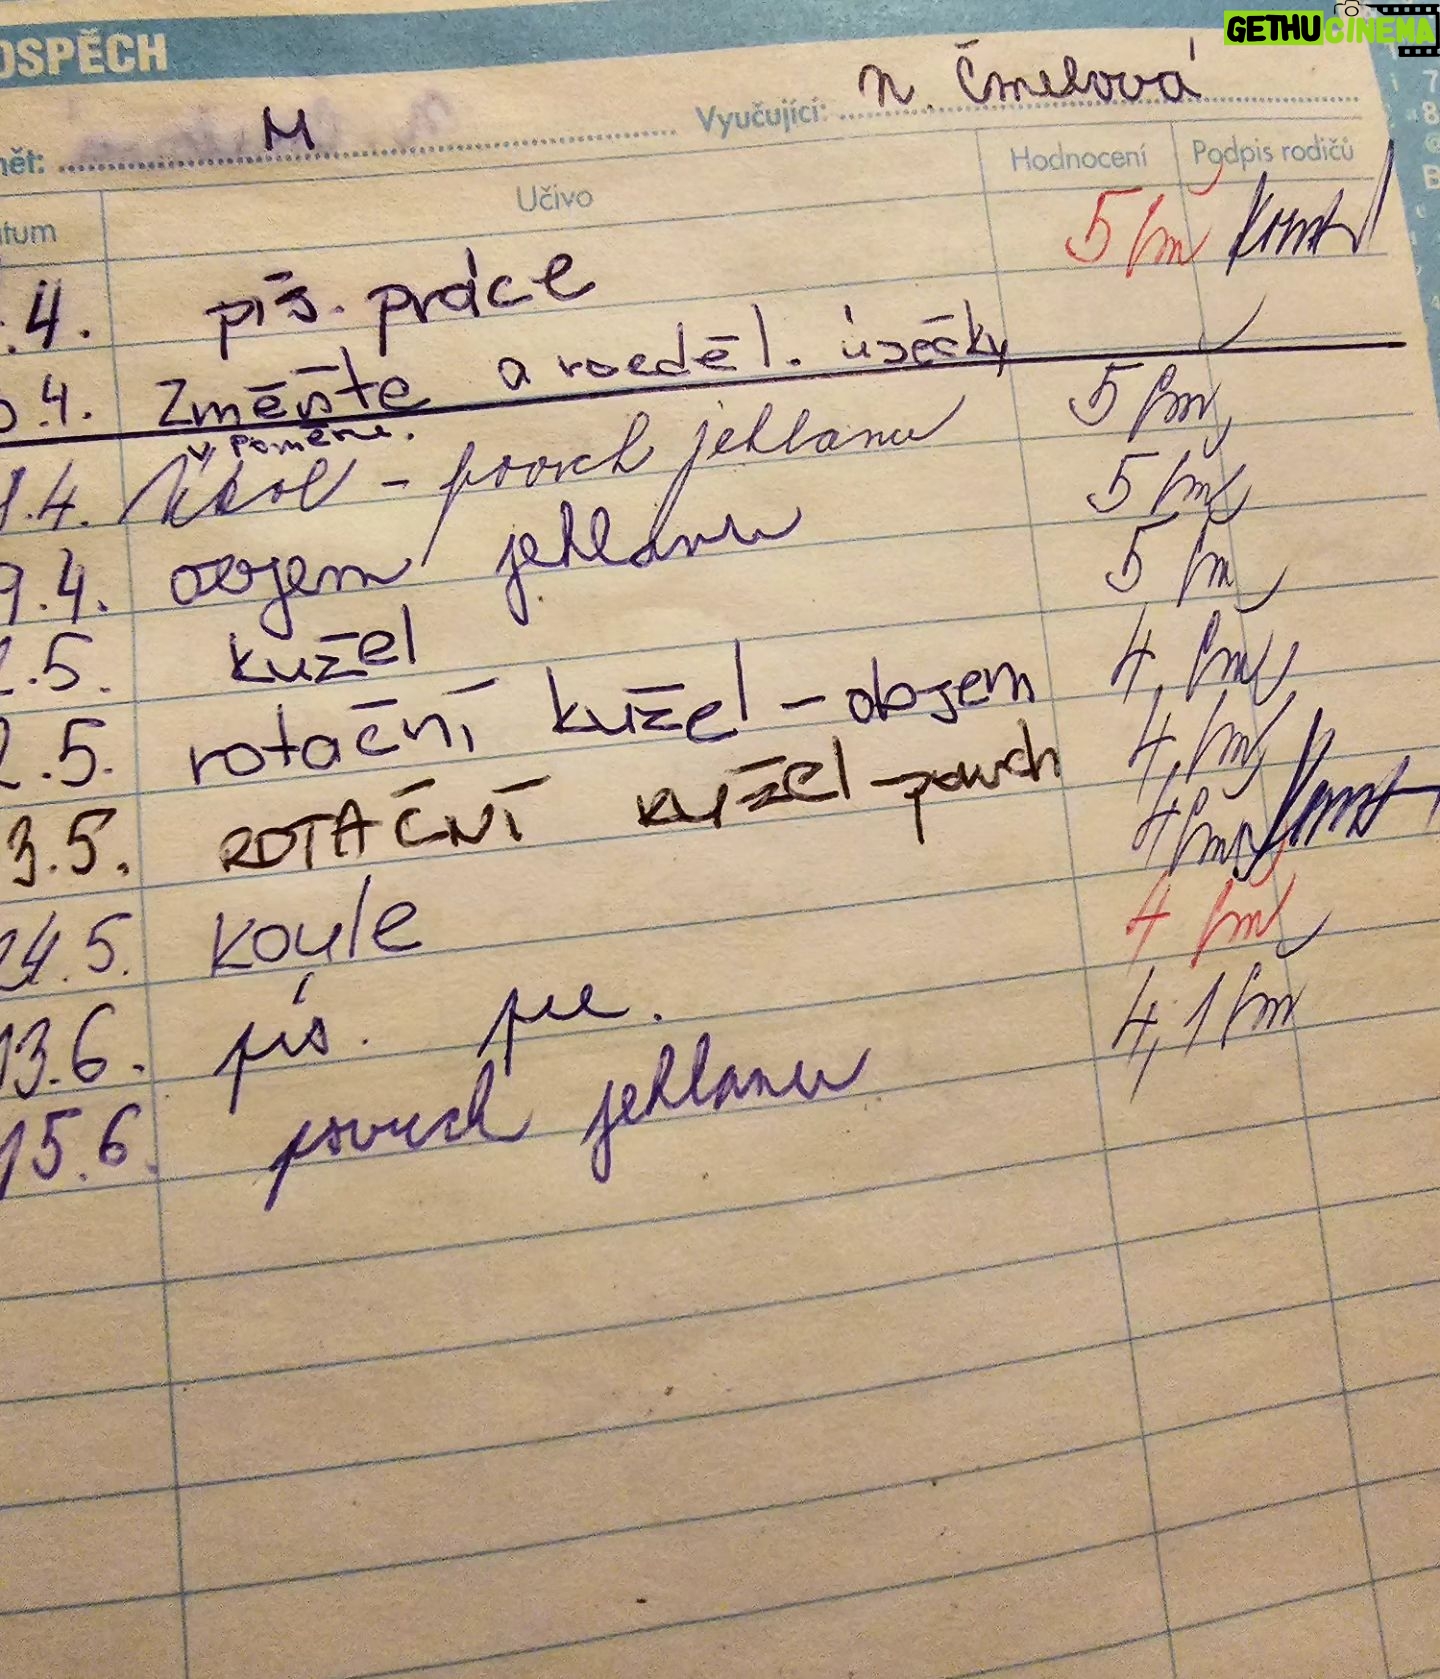 GETHUCINEMA
OSPĚCH
mět: M Vyučující: n. Čmelová
tum Učivo Hodnocení Podpis rodičů
.4. pís. práce 5
.4. Změňte a rozděl. úsečky
v poměru. 5
.4. Úkol - povrch jehlanu 5
9.4. objem jehlanu 5
.5. kužel 4,
2.5. rotační kužel - objem 4,
3.5. ROTAČNÍ kužel - povrch 4
24.5. koule 4
13.6. pís. pr. 4, 1
15.6. povrch jehlanu